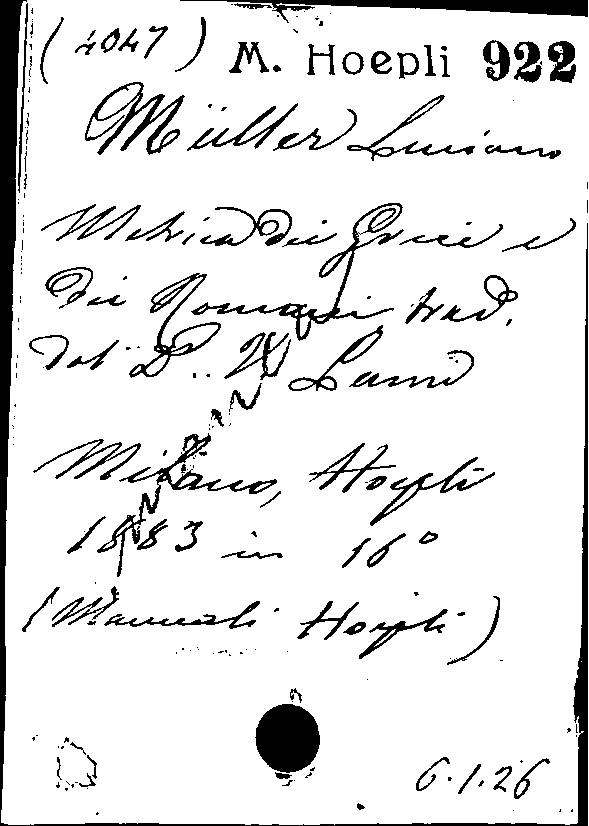 (4047) M. Hoepli 922
Müller Luciano
Metrica dei Greci e
dei Romani trad.
dal Dr. V. Lami
Milano, Hoepli
1883 in 16°
(Manuali Hoepli)
6.1.26